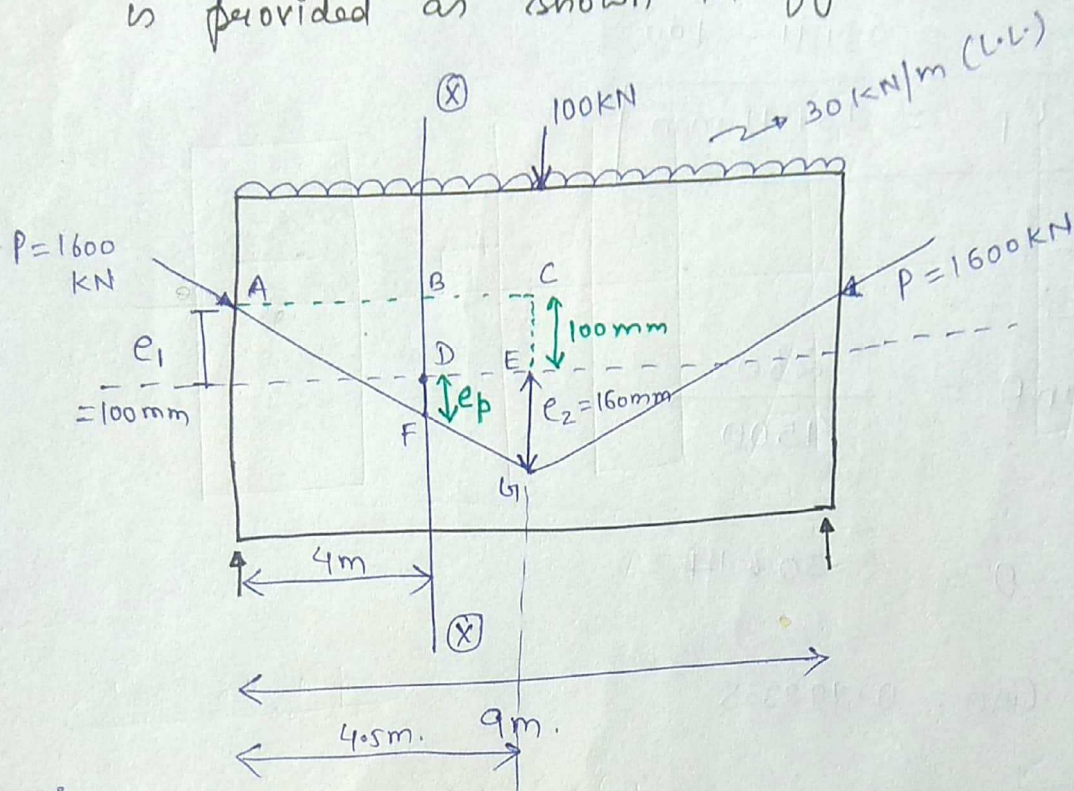 is provided as shown
X
100KN
30KN/m (L.L.)
P=1600
KN
P=1600KN
A
B
C
100mm
e1
=100mm
D
E
ep
e2=160mm
F
G
4m
X
9m.
4.5m.